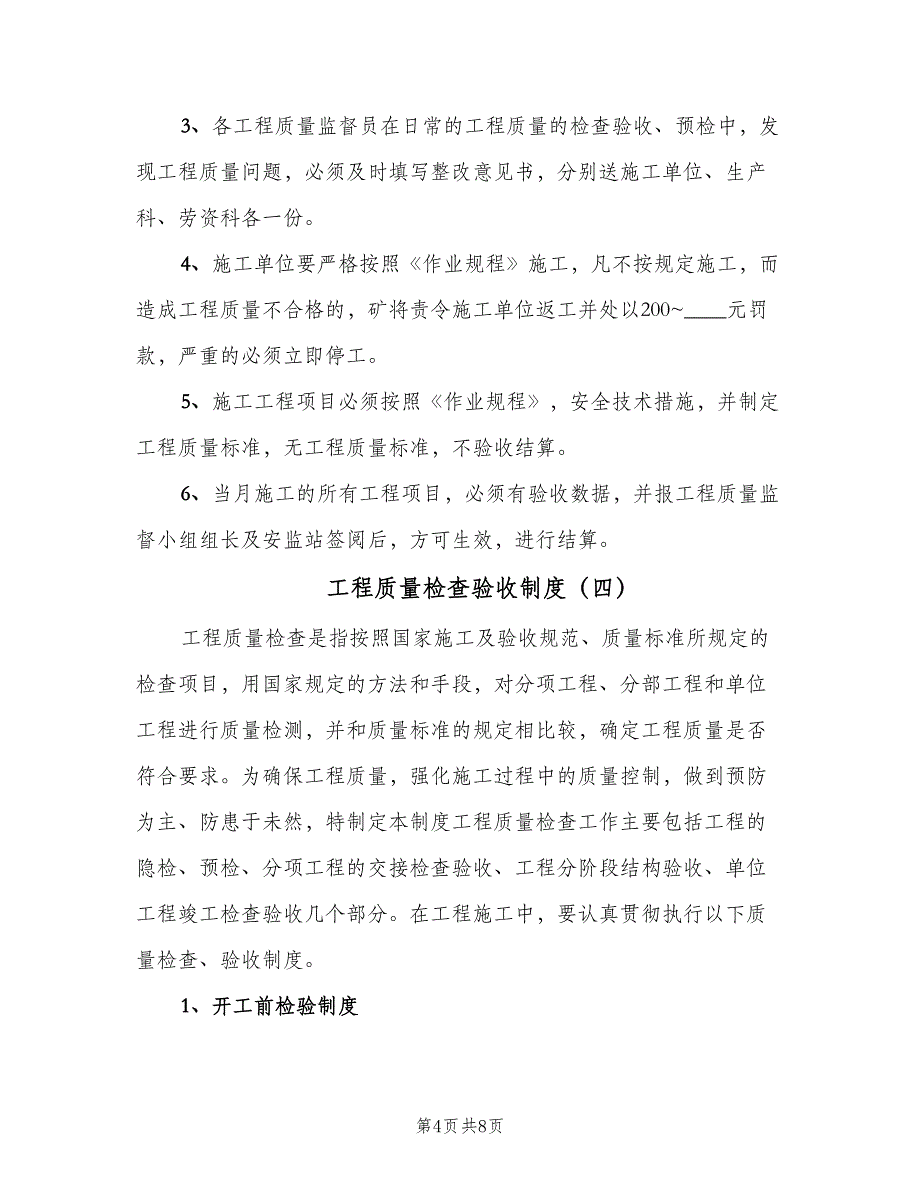 3、各工程质量监督员在日常的工程质量的检查验收、预检中，发
现工程质量问题，必须及时填写整改意见书，分别送施工单位、生产
科、劳资科各一份。
4、施工单位要严格按照《作业规程》施工，凡不按规定施工，而
造成工程质量不合格的，矿将责令施工单位返工并处以200~____元罚
款，严重的必须立即停工。
5、施工工程项目必须按照《作业规程》，安全技术措施，并制定
工程质量标准，无工程质量标准，不验收结算。
6、当月施工的所有工程项目，必须有验收数据，并报工程质量监
督小组组长及安监站签阅后，方可生效，进行结算。
工程质量检查验收制度（四）
工程质量检查是指按照国家施工及验收规范、质量标准所规定的
检查项目，用国家规定的方法和手段，对分项工程、分部工程和单位
工程进行质量检测，并和质量标准的规定相比较，确定工程质量是否
符合要求。为确保工程质量，强化施工过程中的质量控制，做到预防
为主、防患于未然，特制定本制度工程质量检查工作主要包括工程的
隐检、预检、分项工程的交接检查验收、工程分阶段结构验收、单位
工程竣工检查验收几个部分。在工程施工中，要认真贯彻执行以下质
量检查、验收制度。
1、开工前检验制度
第4页 共8页